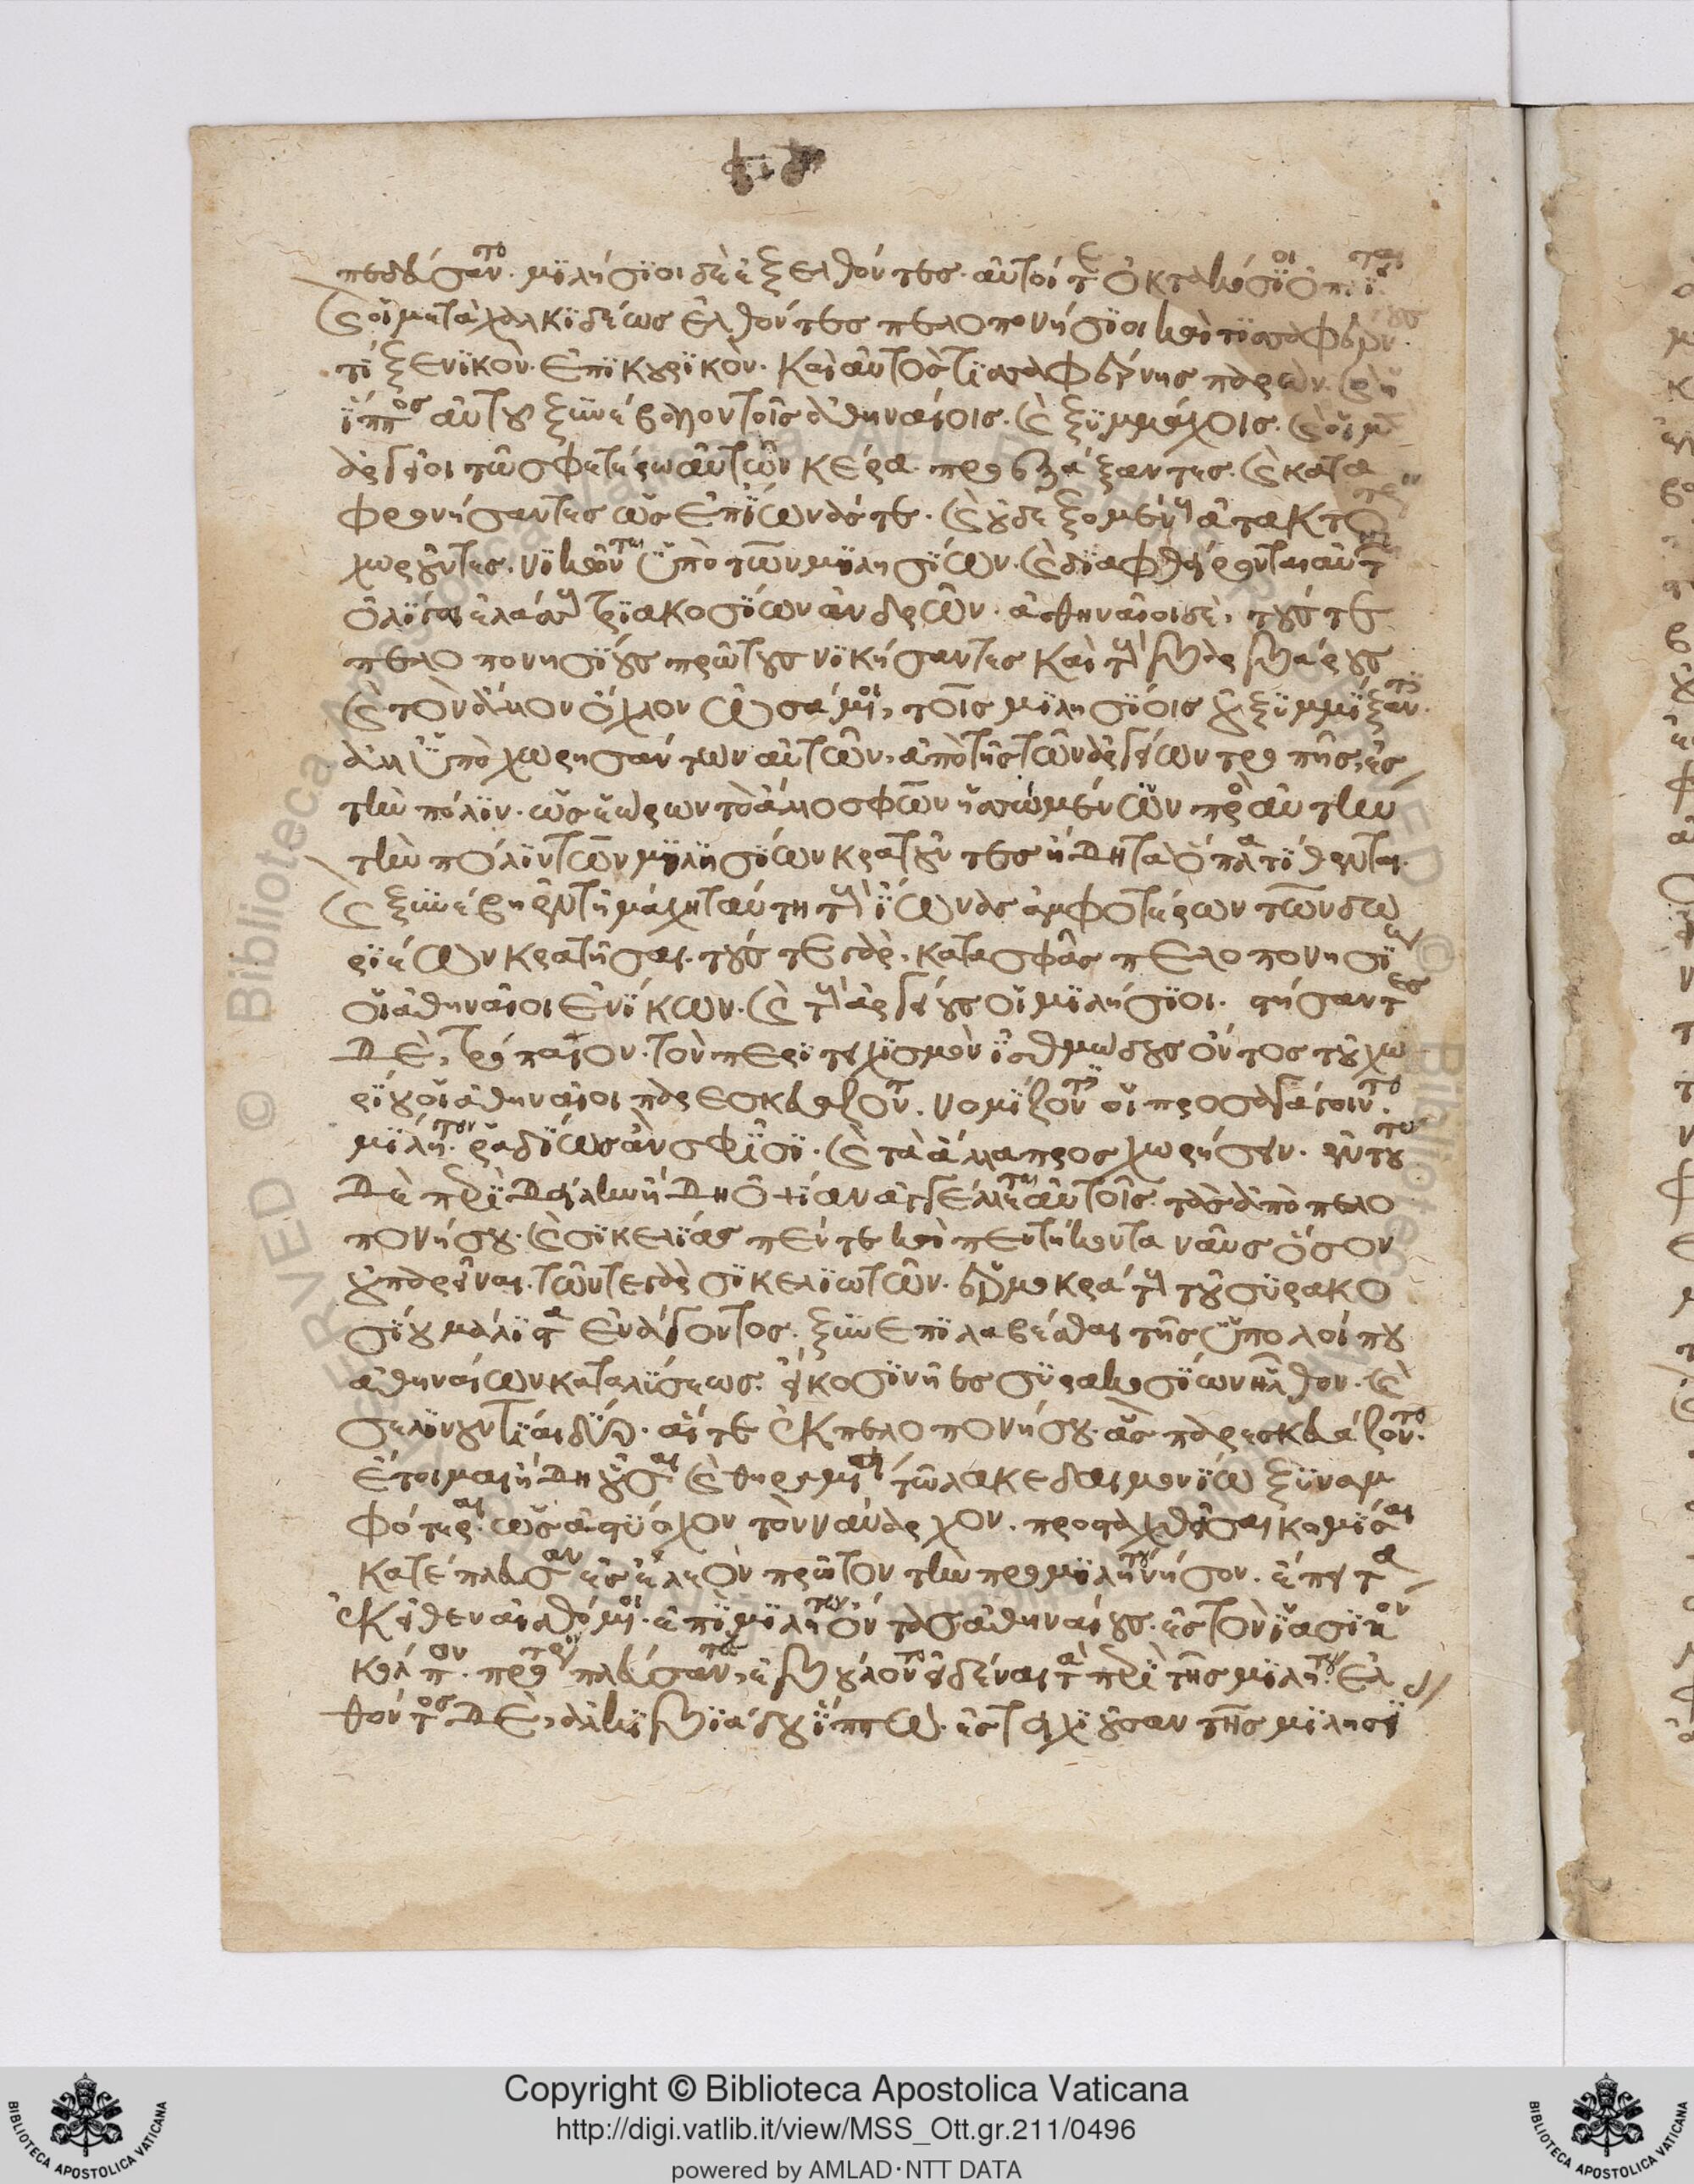 πεδεύσαντο. μϊλήσϊοι δὲ ἐξελθόντες. αὐτοί τε ὀκτακόσϊοι ὁπλῖται
καὶ οἱ μετὰ χαλκϊδέως ἐλθόντες πελοπονήσϊοι καὶ τϊσσαφέρνους
τὶ ξενϊκὸν. ἐπϊκουρϊκὸν. καὶ αὐτὸς τϊσσαφέρνης παρὼν. καὶ ἡ
ἵππος αὐτοῦ ξϋνέβαλον τοῖς ἀθηναίοις. καὶ ξϋμμάχοις. καὶ οἱ μὲν
ἀργεῖοι τῶ σφετέρω αὐτῶν κέρα προεξάξαντες. καὶ κατα
φρονήσαντες ὡς ἐπ' ἴωνάς τε. καὶ οὐ δεξομένους ἀτακτότερον
χωροῦντες. νϊκῶνται ὑπὸ τῶν μϊλησίων. καὶ δϊαφθείρονται αὐτῶν
ὀλίγω ἐλάσσους τρϊακοσίων ἀνδρῶν. ἀθηναῖοι δὲ, τούς τε
πελοπονησίους πρώτους νϊκήσαντες καὶ τοὺς βαρβάρους
καὶ τὸν ἄλλον ὄχλον ὠσάμενοι, τοῖς μϊλησίοις οὐ ξϋμμίξαντες.
ἀλλ' ὑπὸχωρησάντων αὐτῶν, ἀπὸ τῆς τῶν ἀργείων τροπῆς, ἐς
τὴν πόλϊν. ὡς ἑώρων τὸ ἄλλο σφῶν ἡσσώμενον πρὸς αὐτὴν
τὴν πόλϊν τῶν μϊλησίων κρατοῦντες ἤδη τὰ ὅπλα τίθενται.
καὶ ξϋνέβη ἐν τῇ μάχῃ ταύτῃ τοὺς ἴωνας ἀμφοτέρων τῶν δω
ρϊέων κρατῆσαι. τούς τε γὰρ. κατὰ σφᾶς πελοπονησίους
οἱ ἀθηναῖοι ἐνίκων. καὶ τοὺς ἀργείους οἱ μϊλήσϊοι. στήσαντες
δὲ, τρόπαιον. τὸν περϊτειχϊσμὸν ἰσθμώδους ὄντος τοῦ χω
ρίου οἱ ἀθηναῖοι παρεσκευάζοντο. νομίζοντες εἰ προσαγάγοιντο
μίλητον. ῥαδίως ἂν σφίσϊ. καὶ τὰ ἄλλα προσχωρήσειν. ἐν τούτω
δὲ περὶ δείλην ἤδη ὀψίαν ἀγγέλλεται αὐτοῖς. τὰς ἀπὸ πελο
πονήσου. καὶ σϊκελίας πέντε καὶ πεντήκοντα ναῦς ὅσον
οὐ παρεῖναι. τῶν τε γὰρ σϊκελϊωτῶν. ἑρμοκράτους τοῦ σϋρακο
σίου μάλϊστα ἐνάγοντος. ξϋνεπϊλαβέσθαι τῆς ὑπολοίπου
ἀθηναίων καταλύσεως. εἴκοσϊ νῆες σϋρακοσίων ἦλθον. καὶ
σελϊνούντϊαι δύο. αἵ τε ἐκ πελοπονήσου. ἃς παρεσκευάζοντο.
ἑτοῖμαι ἤδη οὖσαι. καὶ θηραμένει τῶ λακεδαιμονίω ξϋναμ
φότεραι. ὡς ἀστύοχον τὸν ναύαρχον. προσταχθεῖσαι κομίσαι
κατέπλευσαν ἐς ἔλεον πρῶτον τὴν πρὸ μϊλήτου νῆσον. ἔπειτα
ἐκεῖθεν αἰσθόμενοι. ἐπὶ μϊλήτω ὄντας ἀθηναίους. ἐς τὸν ἰασϊκὸν
κόλπον. πρότερον πλεύσαντες, ἐβούλοντο εἰδέναι τὰ περὶ τῆς μϊλήτου. ἐλ
θόντος δὲ, ἀλκϊβϊάδου ἵππω. ἐς τειχϊοῦσαν τῆς μϊλησί
Copyright © Biblioteca Apostolica Vaticana
http://digi.vatlib.it/view/MSS_Ott.gr.211/0496
powered by AMLAD·NTT DATA